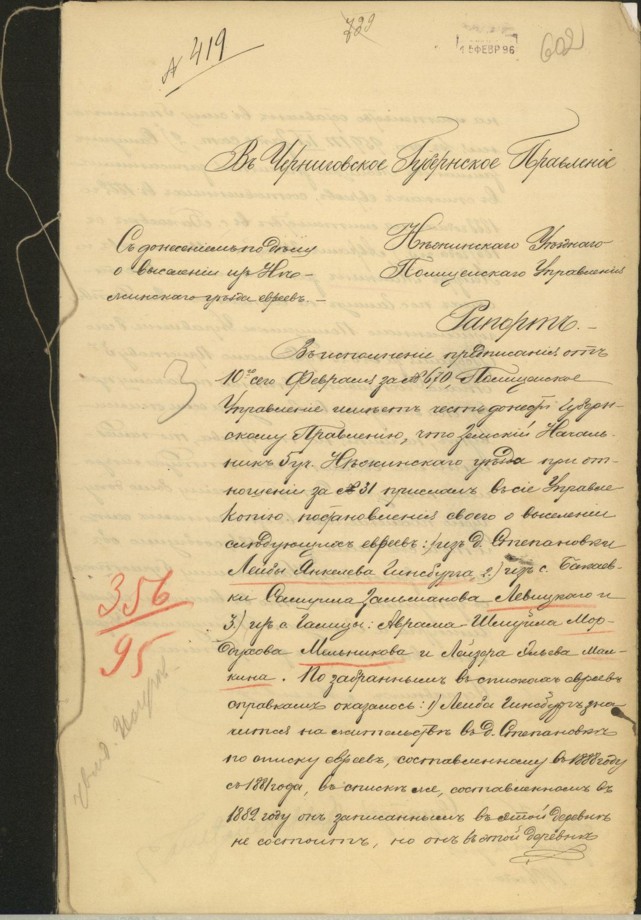 № 419
729
15 ФЕВР 96
602
Въ Черниговское Губернское Правленіе
Съ донесеніемъ по дѣлу
о выселеніи изъ Нѣ-
жинскаго уѣзда евреевъ.-
Нѣжинскаго Уѣзднаго
Полицейскаго Управленія
Рапортъ.-
Въ исполненіе предписанія отъ
10го сего Февраля за № 670, Полицейское
Управленіе имѣетъ честь донести Губерн-
скому Правленію, что Земскій Началь-
никъ 5 уч. Нѣжинскаго уѣзда при от-
ношеніи за № 31 прислалъ въ сіе Управле
копію постановленія своего о выселеніи
слѣдующихъ евреевъ: 1) изъ д. Степановки
Лейбы Янкелева Гинсбурга, 2.) изъ с. Бакаев-
ки Самуила Зальманова Левицкаго и
3.) изъ с. Галицы: Аврама-Шлуйма Мор-
духова Мельникова и Лейзора Эльева Мал-
кина. По забраннымъ въ спискахъ евреевъ
справкамъ оказалось: 1) Лейба Гинсбургъ зна
чится на жительствѣ въ д. Степановкѣ
по списку евреевъ, составленному въ 1888 году
съ 1881 года, въ спискѣ же, составленномъ въ
1882 году онъ записаннымъ въ этой деревнѣ
не состоитъ, но онъ въ этой деревнѣ
3
356
95